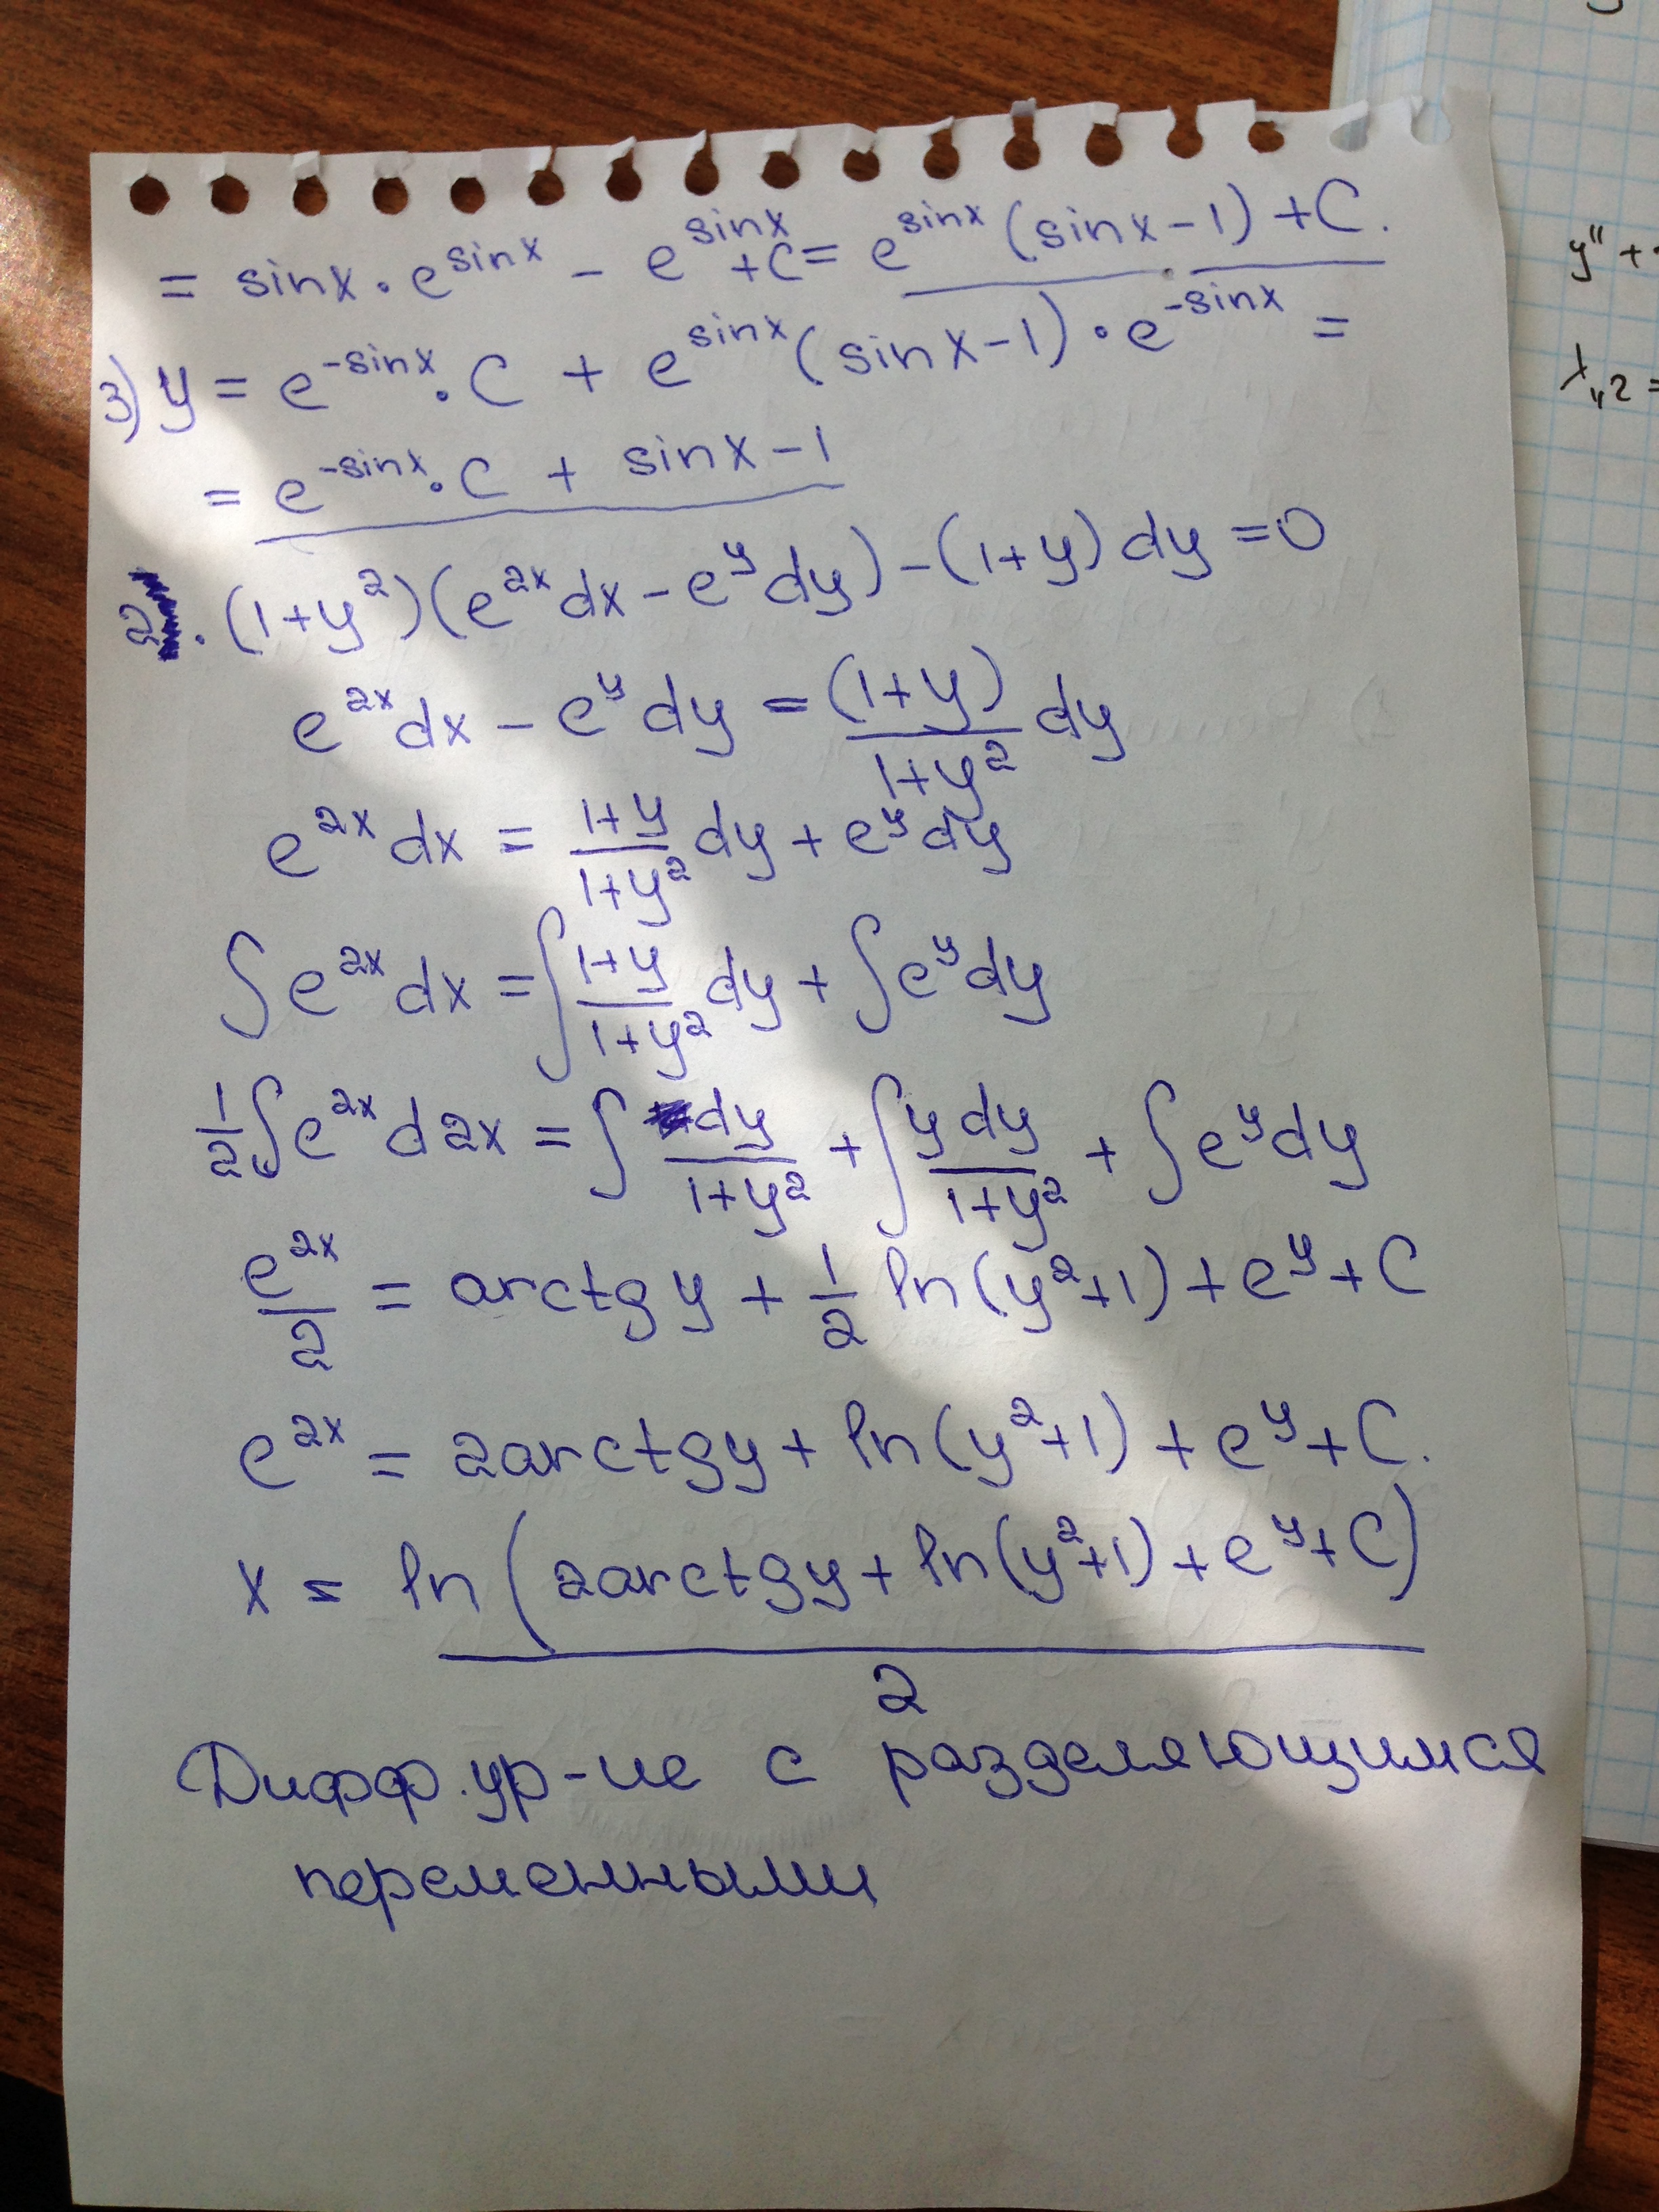 = sinx · e^{sinx} − e^{sinx} + C = e^{sinx} (sinx − 1) + C.
3) y = e^{-sinx} · C + e^{sinx} (sinx − 1) · e^{-sinx} =
= e^{-sinx} · C + sinx − 1
2. (1+y²)(e^{2x}dx − e^y dy) − (1+y) dy = 0
e^{2x}dx − e^y dy = \frac{(1+y)}{1+y²} dy
e^{2x} dx = \frac{1+y}{1+y²} dy + e^y dy
∫ e^{2x} dx = ∫ \frac{1+y}{1+y²} dy + ∫ e^y dy
\frac{1}{2} ∫ e^{2x} d2x = ∫ \frac{dy}{1+y²} + ∫ \frac{y dy}{1+y²} + ∫ e^y dy
\frac{e^{2x}}{2} = arctgy + \frac{1}{2} ln(y²+1) + e^y + C
e^{2x} = 2arctgy + ln(y²+1) + e^y + C.
x = \frac{ln(2arctgy + ln(y²+1) + e^y + C)}{2}
Дифф.ур-ие с разделяющимся
переменными
y'' +
λ₁,₂ =